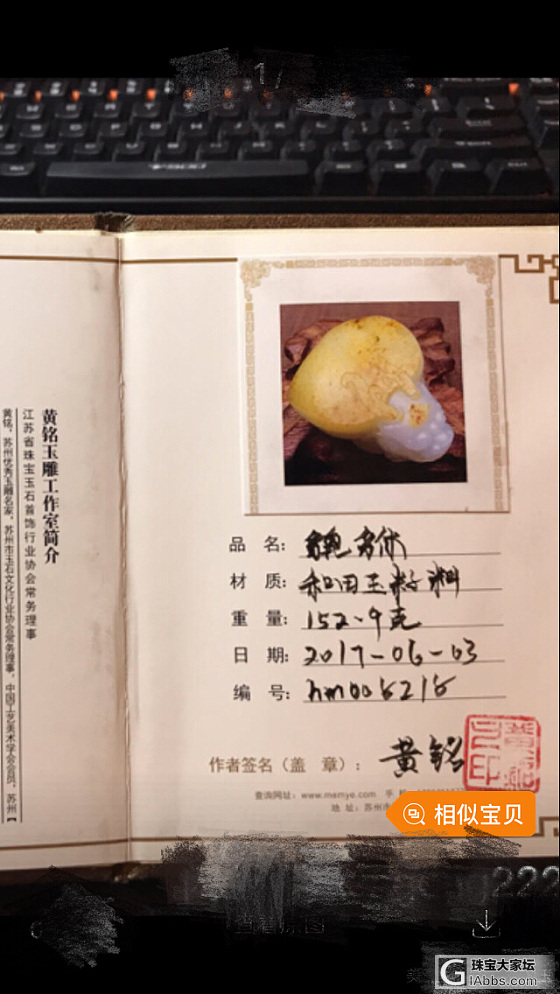 1/
黄铭玉雕工作室简介
江苏省珠宝玉石首饰行业协会常务理事
黄铭，苏州优秀玉雕名家，苏州市玉石文化行业协会常务理事，中国工艺美术学会会员，苏州
品 名：
材 质：和田玉籽料
重 量：152.9克
日 期：2017-06-03
编 号：
作者签名（盖 章）：黄铭
查询网址：www.memye.com 手
地 址：苏州市
相似宝贝
222
查看原图
珠宝大家坛
iAbbs.com